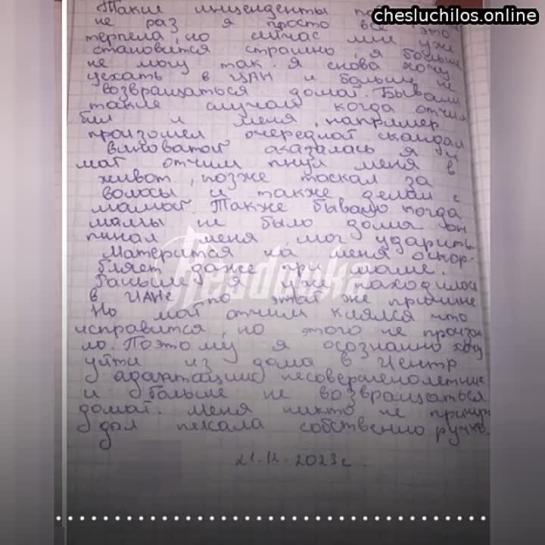 chesluchilos.online
Такие инциденты
не раз я просто все это
терпела, но сейчас мне уже
становится страшно, я больше
не могу так. Я снова хочу
уехать в ЦАН и больше не
возвращаться домой. Бывали
такие случаи когда отчим
бил и меня, например
произошел очередной скандал
виноватой оказалась я и
мой отчим пнул меня в
живот, позже таскал за
волосы и также делал с
мамой. Также бывало когда
мамы не было дома он
пинал меня, мог ударить
Матерится на меня оскор-
бляет даже при маме.
Раньше я уже находилась
в ЦАНе по этой же причине
Но мой отчим клялся что
исправится, но этого не произо
ло. Поэтому я осознанно хочу
уйти из дома в Центр
адаптации несовершенолетних
и больше не возвращаться
домой. Меня никто не принуж
дал писала собственно ручно.
21.12.2023г.
Readovka